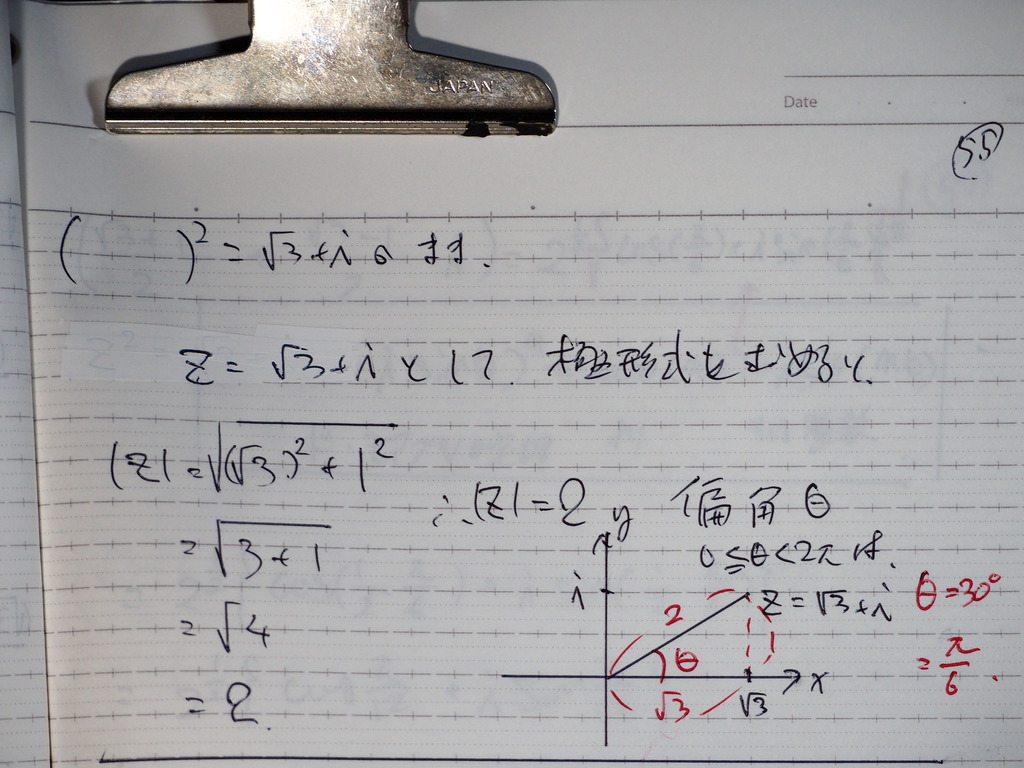 JAPAN
Date
55
( )² = √3+i の
z = √3+i として. 極形式を求めると.
|z| = √((√3)²+1²)
= √(3+1)
= √4
= 2
∴|z|=2
偏角 θ
0≦θ<2π は.
y
i
2
z=√3+i
θ=30°
= π/6.
θ
x
√3
√3
1